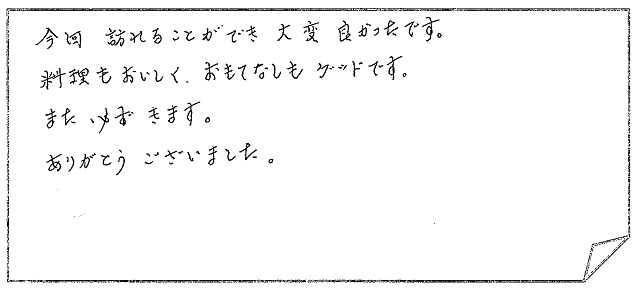 今回 訪れることができ 大変 良かったです。
料理もおいしく、おもてなしも グッドです。
また 必ず きます。
ありがとう ございました。